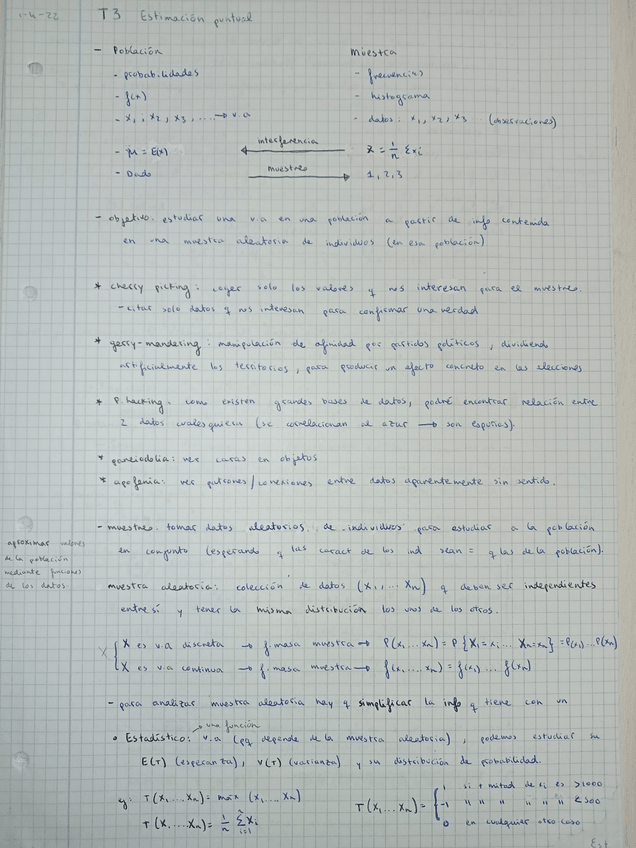 1-4-22 T3 Estimación puntual
- Población Muestra
- probabilidades - frecuencias
- f(x) - histograma
- x₁, x₂, x₃, .... → v.a - datos: x₁, x₂, x₃ (observaciones)
interferencia
- μ = E(x) x̄ = 1/n Σxi
muestreo
- Dado 1, 2, 3
- objetivo: estudiar una v.a en una población a partir de info contenida
en una muestra aleatoria de individuos (en esa población)
* cherry picking: coger solo los valores q nos interesan para el muestreo.
- citar solo datos q nos interesan para confirmar una verdad
* gerry-mandering: manipulación de afinidad por partidos políticos, dividiendo
artificialmente los territorios, para producir un efecto concreto en las elecciones
* P. hacking: como existen grandes bases de datos, podré encontrar relación entre
2 datos cualesquiera (se correlacionan al azar → son espurias).
* pareiodolia: ver caras en objetos
* apofenia: ver patrones/conexiones entre datos aparentemente sin sentido.
- muestreo: tomar datos aleatorios de individuos para estudiar a la población
en conjunto (esperando q las caract de los ind sean = q las de la población).
aproximar valores
de la población
mediante funciones
de los datos.
muestra aleatoria: colección de datos (X₁, ... Xn) q deben ser independientes
entre sí y tener la misma distribución los unos de los otros.
X { X es v.a discreta → f. masa muestra → P(x₁ ... xn) = P{X₁=x₁ ... Xn=xn} = P(x₁)...P(xn)
X es v.a continua → f. masa muestra → f(x₁ ... xn) = f(x₁) ... f(xn)
- para analizar muestra aleatoria hay q simplificar la info q tiene con un
una función
• Estadístico: v.a (pq depende de la muestra aleatoria), podemos estudiar su
E(T) (esperanza), V(T) (varianza) y su distribución de probabilidad.
ej: T(X₁...Xn) = max (X₁...Xn)
T(X₁...Xn) = 1/n Σ i=1 n Xi
T(X₁...Xn) = { 1 si + mitad de xi es >1000
-1 " " " " " " ≤500
0 en cualquier otro caso
Est